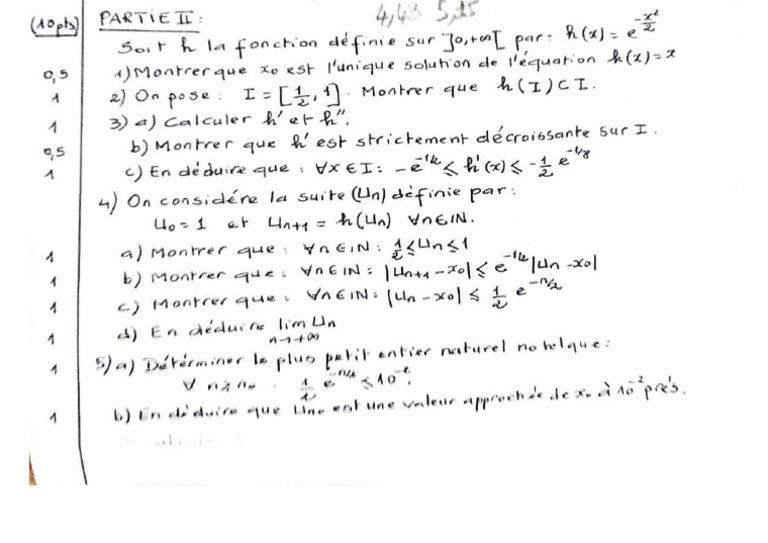 4,43 5,25
(10pts) PARTIE II :
Soit h la fonction définie sur ]0,+∞[ par : h(x) = e^{-x²/2}
0,5 1) Montrer que x₀ est l'unique solution de l'équation h(x)=x
1 2) On pose : I = [1/2, 1]. Montrer que h(I) ⊂ I.
1 3) a) Calculer h' et h''.
0,5 b) Montrer que h' est strictement décroissante sur I.
1 c) En déduire que : ∀x ∈ I : -e^{-1/2} ≤ h'(x) ≤ -1/2 e^{-1/8}
4) On considére la suite (Un) définie par :
U₀ = 1 et Un+1 = h(Un) ∀n∈IN.
1 a) Montrer que : ∀n∈IN : 1/2 ≤ Un ≤ 1
1 b) Montrer que : ∀n∈IN : |Un+1 - x₀| ≤ e^{-1/2} |Un - x₀|
1 c) Montrer que : ∀n∈IN : |Un - x₀| ≤ 1/2 e^{-n/2}
1 d) En déduire lim Un
n→+∞
1 5) a) Détérminer le plus petit entier naturel n₀ tel que :
∀ n ≥ n₀ : 1/2 e^{-n/2} ≤ 10^{-2}.
1 b) En déduire que Un₀ est une valeur approchée de x₀ à 10^{-2} près.